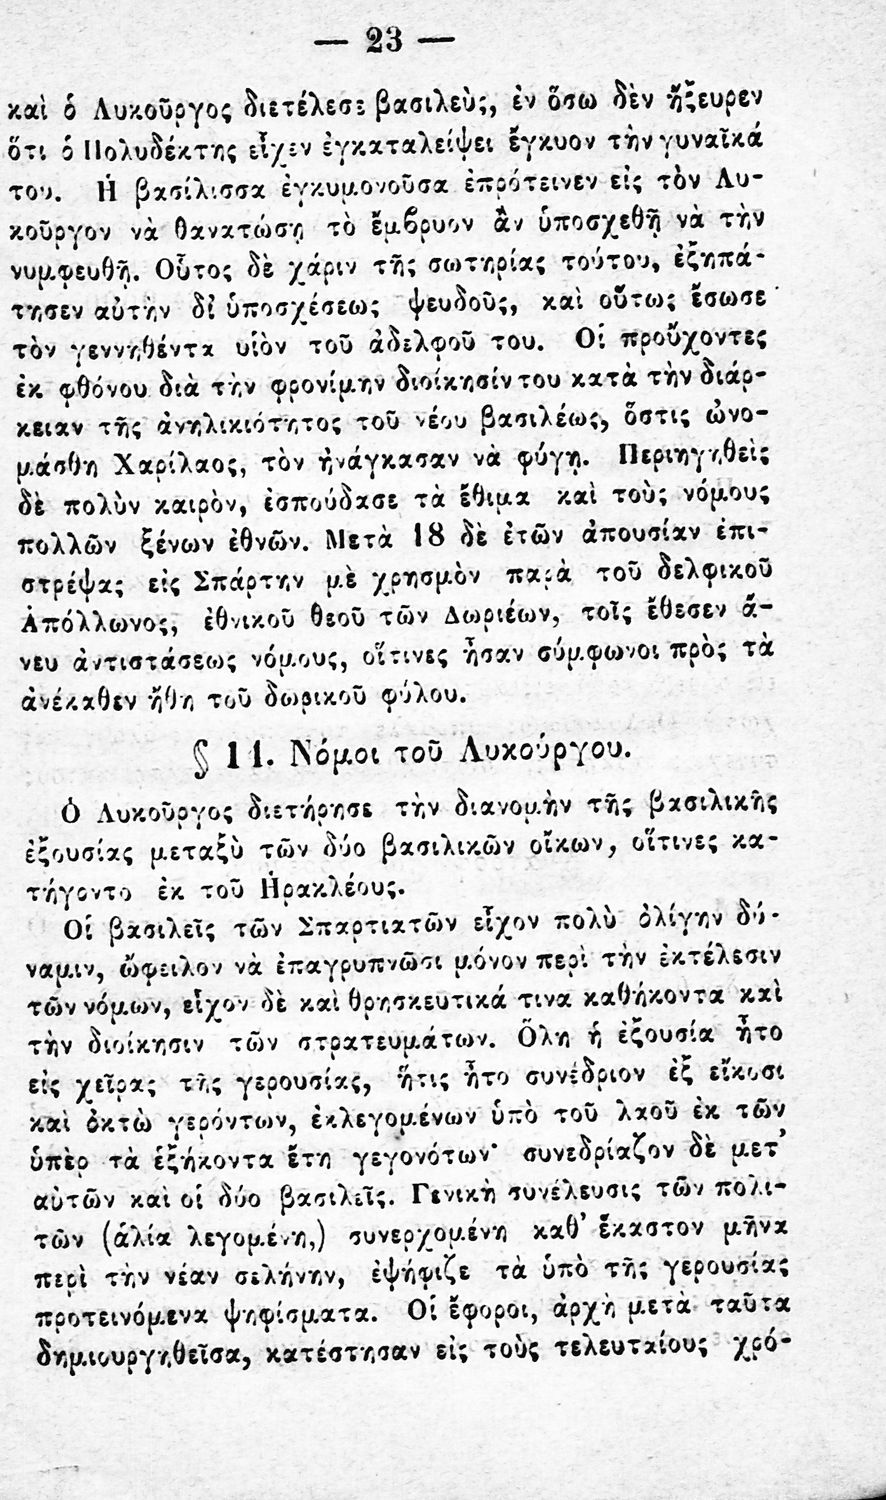 — 23 —
καὶ ὁ Λυκοῦργος διετέλεσε βασιλεὺς, ἐν ὅσω δὲν ἤξευρεν
ὅτι ὁ Πολυδέκτης εἶχεν ἐγκαταλείψει ἔγκυον τὴν γυναῖκά
του. Ἡ βασίλισσα ἐγκυμονοῦσα ἐπρότεινεν εἰς τὸν Λυ-
κοῦργον νὰ θανατώσῃ τὸ ἔμβρυον ἂν ὑποσχεθῇ νὰ τὴν
νυμφευθῇ. Οὗτος δὲ χάριν τῆς σωτηρίας τούτου, ἐξηπά-
τησεν αὐτὴν δἰ ὑποσχέσεως ψευδοῦς, καὶ οὕτως ἔσωσε
τὸν γεννηθέντα υἱὸν τοῦ ἀδελφοῦ του. Οἱ προὔχοντες
ἐκ φθόνου διὰ τὴν φρονίμην διοίκησίν του κατὰ τὴν διάρ-
κειαν τῆς ἀνηλικιότητος τοῦ νέου βασιλέως, ὅστις ὠνο-
μάσθη Χαρίλαος, τὸν ἠνάγκασαν νὰ φύγῃ. Περιηγηθεὶς
δὲ πολὺν καιρὸν, ἐσπούδασε τὰ ἔθιμα καὶ τοὺς νόμους
πολλῶν ξένων ἐθνῶν. Μετὰ 18 δὲ ἐτῶν ἀπουσίαν ἐπι-
στρέψας εἰς Σπάρτην μὲ χρησμὸν παρὰ τοῦ δελφικοῦ
Ἀπόλλωνος, ἐθνικοῦ θεοῦ τῶν Δωριέων, τοῖς ἔθεσεν ἄ-
νευ ἀντιστάσεως νόμους, οἵτινες ἦσαν σύμφωνοι πρὸς τὰ
ἀνέκαθεν ἤθη τοῦ δωρικοῦ φύλου.
§ 11. Νόμοι τοῦ Λυκούργου.
Ὁ Λυκοῦργος διετήρησε τὴν διανομὴν τῆς βασιλικῆς
ἐξουσίας μεταξὺ τῶν δύο βασιλικῶν οἴκων, οἵτινες κα-
τήγοντο ἐκ τοῦ Ἡρακλέους.
Οἱ βασιλεῖς τῶν Σπαρτιατῶν εἶχον πολὺ ὀλίγην δύ-
ναμιν, ὤφειλον νὰ ἐπαγρυπνῶσι μόνον περὶ τὴν ἐκτέλεσιν
τῶν νόμων, εἶχον δὲ καὶ θρησκευτικά τινα καθήκοντα καὶ
τὴν διοίκησιν τῶν στρατευμάτων. Ὅλη ἡ ἐξουσία ἦτο
εἰς χεῖρας τῆς γερουσίας, ἥτις ἦτο συνέδριον ἐξ εἴκοσι
καὶ ὀκτὼ γερόντων, ἐκλεγομένων ὑπὸ τοῦ λαοῦ ἐκ τῶν
ὑπὲρ τὰ ἑξήκοντα ἔτη γεγονότων· συνεδρίαζον δὲ μετ'
αὐτῶν καὶ οἱ δύο βασιλεῖς. Γενικὴ συνέλευσις τῶν πολι-
τῶν (ἁλία λεγομένη,) συνερχομένη καθ' ἕκαστον μῆνα
περὶ τὴν νέαν σελήνην, ἐψήφιζε τὰ ὑπὸ τῆς γερουσίας
προτεινόμενα ψηφίσματα. Οἱ ἔφοροι, ἀρχὴ μετὰ ταῦτα
δημιουργηθεῖσα, κατέστησαν εἰς τοὺς τελευταίους χρό-